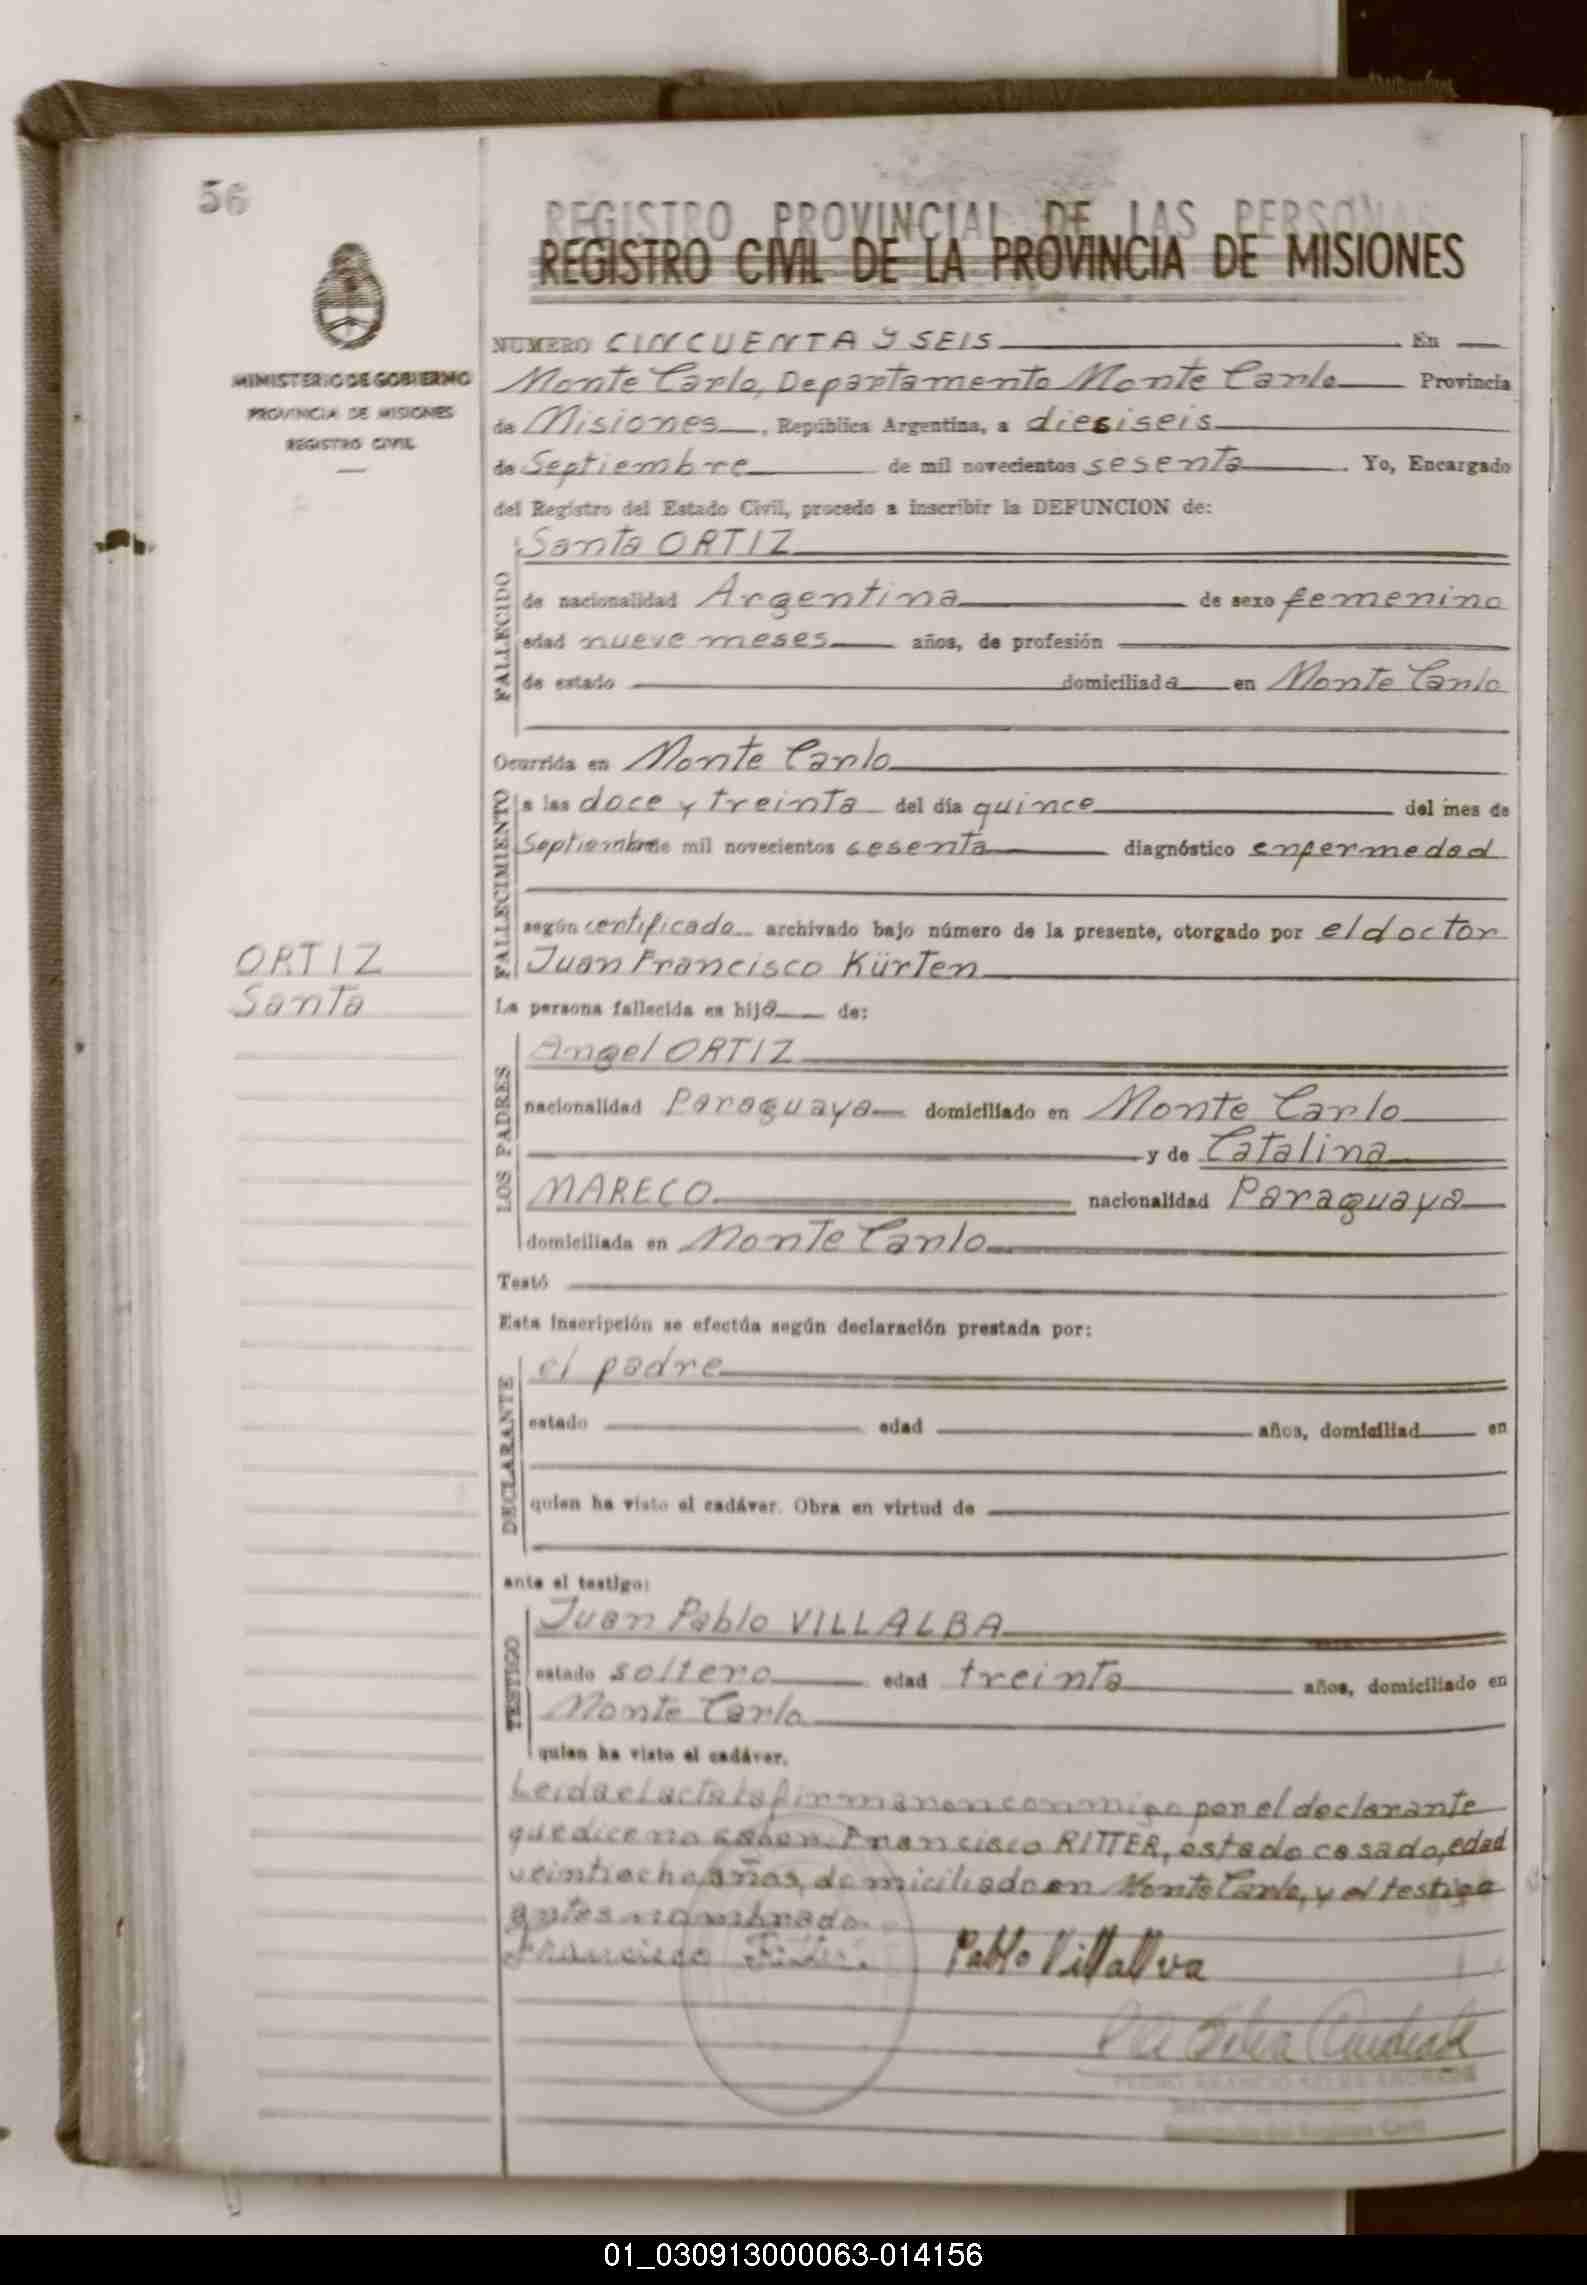 56
REGISTRO PROVINCIAL DE LAS PERSONAS
REGISTRO CIVIL DE LA PROVINCIA DE MISIONES
MINISTERIO DE GOBIERNO
PROVINCIA DE MISIONES
REGISTRO CIVIL
NUMERO CINCUENTA Y SEIS En
Monte Carlo, Departamento Monte Carlo Provincia
de Misiones, República Argentina, a diesiseis
de Septiembre de mil novecientos sesenta. Yo, Encargado
del Registro del Estado Civil, procedo a inscribir la DEFUNCION de:
FALLECIDO
Santa ORTIZ
de nacionalidad Argentina de sexo femenino
edad nueve meses años, de profesión
de estado domiciliada en Monte Carlo
Ocurrida en Monte Carlo
FALLECIMIENTO
a las doce y treinta del día quince del mes de
Septiembre de mil novecientos sesenta diagnóstico enfermedad
según certificado archivado bajo número de la presente, otorgado por el doctor
Juan Francisco Kürten
ORTIZ
Santa
La persona fallecida es hija de:
LOS PADRES
Angel ORTIZ
nacionalidad Paraguaya domiciliado en Monte Carlo
y de Catalina
MARECO nacionalidad Paraguaya
domiciliada en Monte Carlo
Testó
Esta inscripción se efectúa según declaración prestada por:
DECLARANTE
el padre
estado edad años, domiciliad en
quien ha visto el cadáver. Obra en virtud de
ante el testigo:
TESTIGO
Juan Pablo VILLALBA
estado soltero edad treinta años, domiciliado en
Monte Carlo
quien ha visto el cadáver.
Leida el acta la firmaron conmigo por el declarante
que dice no saber, Francisco RITTER, estado casado, edad
veintiocho años, domiciliado en Monte Carlo, y el testigo
antes nombrado.
Francisco Pablo Villalva
01_030913000063-014156